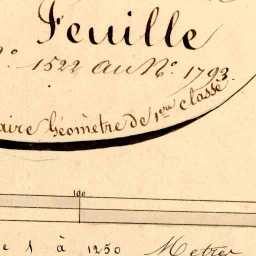 Feuille
N.º 1522 au N.º 1793.
aire Géomètre de 1ère classe
100
e 1 à 1250 Metres